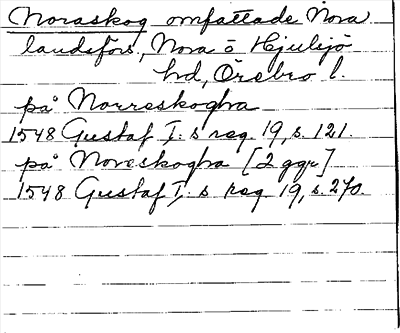 Noraskog omfattade Nora
landsförs, Nora o Hjulsjö
hd, Örebro l.
på Norreskogha
1548 Gustaf I:s reg. 19, s. 121.
på Noreskogha [2 ggr]
1548 Gustaf I:s reg 19, s. 270.